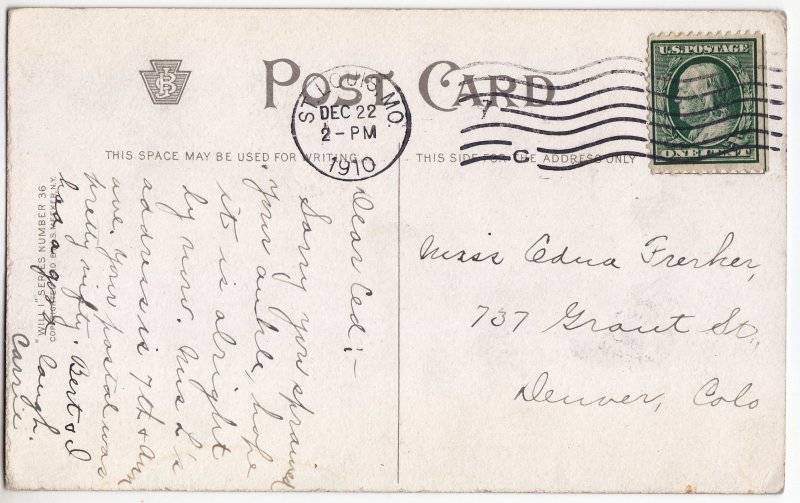 POST CARD
ST. LOUIS, MO.
DEC 22
2-PM
1910
7
C
U.S. POSTAGE
ONE CENT
THIS SPACE MAY BE USED FOR WRITING
THIS SIDE FOR THE ADDRESS ONLY
Dear Ed:-
Sorry you sprained
your ankle, hope
it is alright
by now. Miss L's
address is 7th & Ann
ave. Your postal was
pretty nifty. Bert & I
had a good laugh.
Carrie
Miss Edna Frerker,
737 Grant St.,
Denver, Colo
"WITT" SERIES NUMBER 36